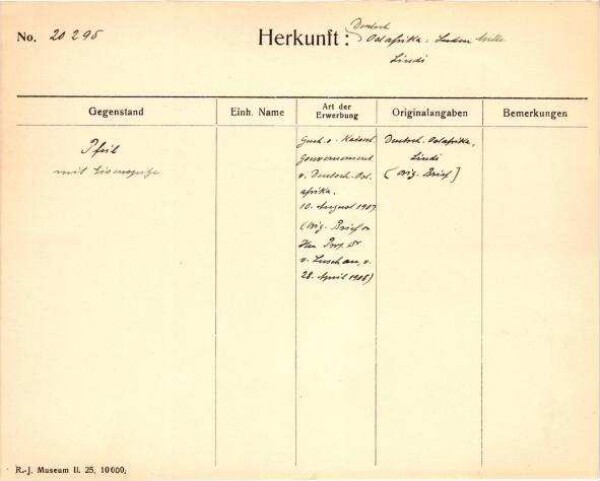 No. 20 295
Herkunft: Deutsch
Ostafrika.
Lindi
Gegenstand
Einh. Name
Art der
Erwerbung
Originalangaben
Bemerkungen
Pfeil
mit Eisenspitze
Gesch. v. Kaiserl.
Gouvernement
v. Deutsch-Ost-
afrika.
10. August 1907
(orig. Brief v.
Hrn Prof. Dr
v. Luschan, v.
28. April 1908)
Deutsch-Ostafrika,
Lindi
(orig. Brief)
R.-J. Museum II. 25. 10000.